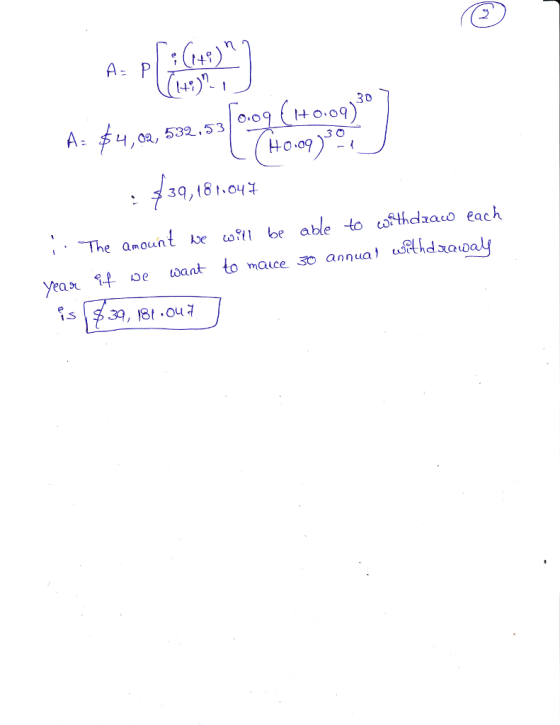 2
A = P [ i(1+i)^n / (1+i)^n - 1 ]
A = $4,02,532.53 [ 0.09 (1+0.09)^30 / (1+0.09)^30 - 1 ]
= $39,181.047
∴ The amount we will be able to withdraw each
year if we want to make 30 annual withdrawals
is $39,181.047